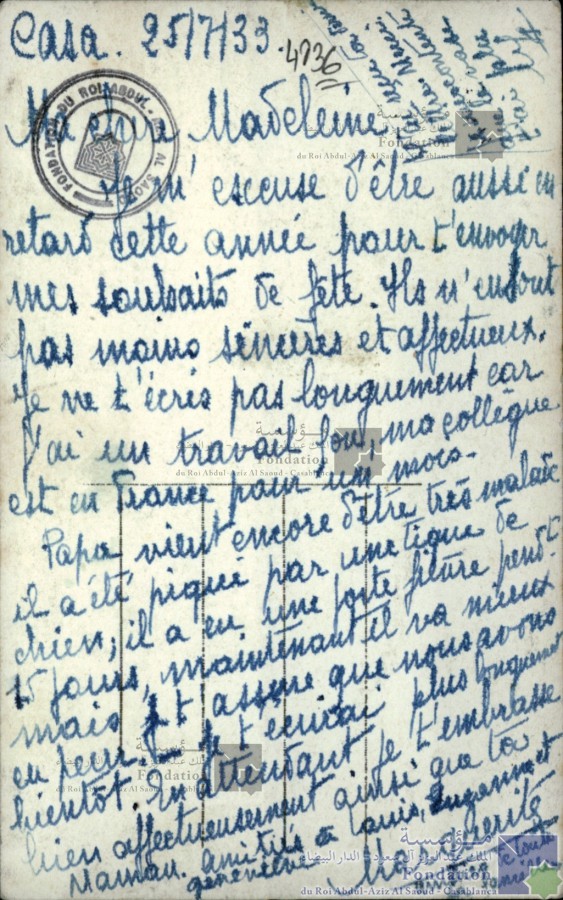 Casa. 25/7/33
4736
Ma chère Madeleine
Je m'excuse d'être aussi en
retard cette année pour t'envoyer
mes souhaits de fête. Ils n'en sont
pas moins sincères et affectueux.
Je ne t'écris pas longuement car
j'ai un travail fou, ma collègue
est en France pour un mois.
Papa vient encore d'être très malade
il a été piqué par une tique de
chien; il a eu une forte fièvre pendt
15 jours, maintenant il va mieux
mais je t'assure que nous avons
eu peur. Je t'écrirai plus longuement
bientôt. En attendant je t'embrasse
bien affectueusement ainsi que ta
Maman. Amitiés à Louis, Suzanne et
geneviève
Marguerite
FONDATION DU ROI ABDUL-AZIZ AL SAOUD
مؤسسة
الملك عبد العزيز آل سعود الدار البيضاء
Fondation
du Roi Abdul-Aziz Al Saoud - Casablanca